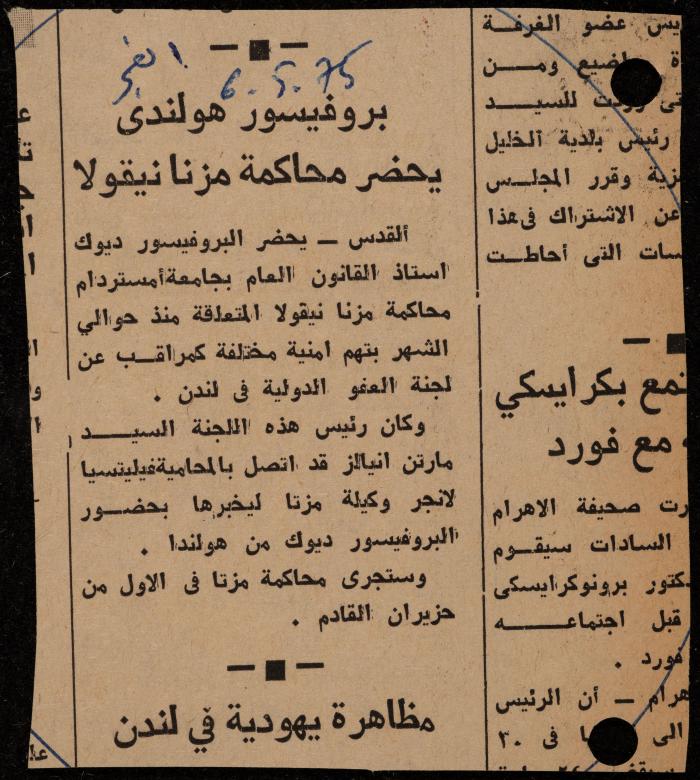 الفجر
6.5.75
بروفيسور هولندى
يحضر محاكمة مزنا نيقولا
ألقدس — يحضر البروفيسور ديوك
استاذ القانون العام بجامعة أمستردام
محاكمة مزنا نيقولا المتعلقة منذ حوالي
الشهر بتهم امنية مختلفة كمراقب عن
لجنة العفو الدولية فى لندن .
وكان رئيس هذه اللجنة السيد
مارتن انيالز قد اتصل بالمحامية فيليتسيا
لانجر وكيلة مزنا ليخبرها بحضور
البروفيسور ديوك من هولندا .
وستجرى محاكمة مزنا فى الاول من
حزيران القادم .
مظاهرة يهودية في لندن
يس عضو الغرفة
ضيع ومن
للسيد
رئيس بلدية الخليل
زية وقرر المجلس
عن الاشتراك فى هذا
سات التى أحاطت
تمع بكرايسكي
مع فورد
رت صحيفة الاهرام
السادات سيقوم
كتور برونوكرايسكى
قبل اجتماعه
فورد .
هرام — أن الرئيس
الى فى ٣٠